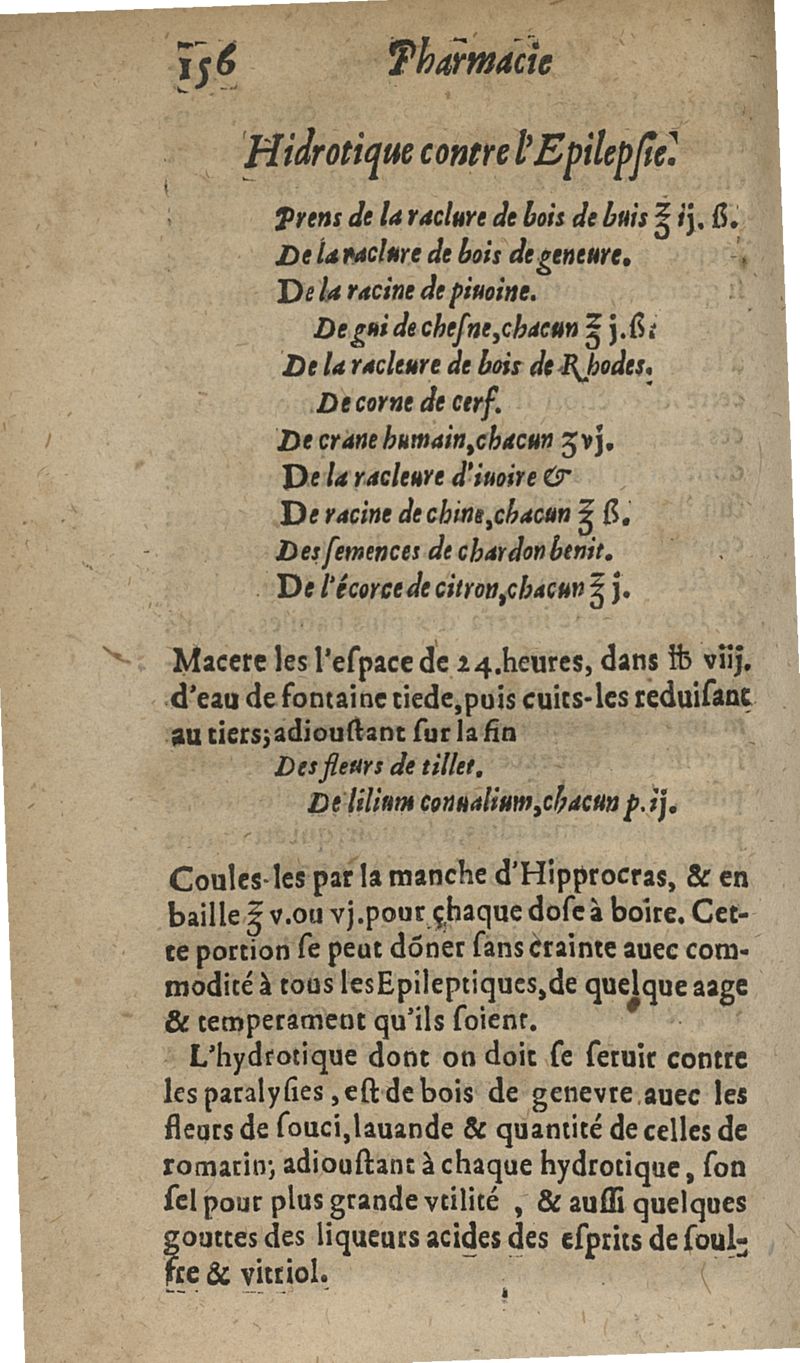 156 Pharmacie
Hidrotique contre l'Epilepſie.
Prens de la raclure de bois de buis ℥ ij. ß.
De la raclure de bois de geneure.
De la racine de piuoine.
De gui de cheſne, chacun ℥ j. ß.
De la racleure de bois de Rhodes.
De corne de cerf.
De crane humain, chacun ʒ vj.
De la racleure d'iuoire &
De racine de chine, chacun ℥ ß.
Des ſemences de chardon benit.
De l'écorce de citron, chacun ℥ j.
Macere les l'eſpace de 24. heures, dans ℔ viij.
d'eau de fontaine tiede, puis cuits-les reduiſant
au tiers; adiouſtant ſur la fin
Des fleurs de tillet.
De lilium conualium, chacun p. ij.
Coules-les par la manche d'Hipprocras, & en
baille ℥ v. ou vj. pour chaque doſe à boire. Cet-
te portion ſe peut dõner ſans crainte auec com-
modité à tous les Epileptiques, de quelque aage
& temperament qu'ils ſoient.
L'hydrotique dont on doit ſe ſeruir contre
les paralyſies, eſt de bois de genevre auec les
fleurs de ſouci, lauande & quantité de celles de
romarin; adiouſtant à chaque hydrotique, ſon
ſel pour plus grande vtilité, & auſſi quelques
gouttes des liqueurs acides des eſprits de ſoul-
fre & vitriol.